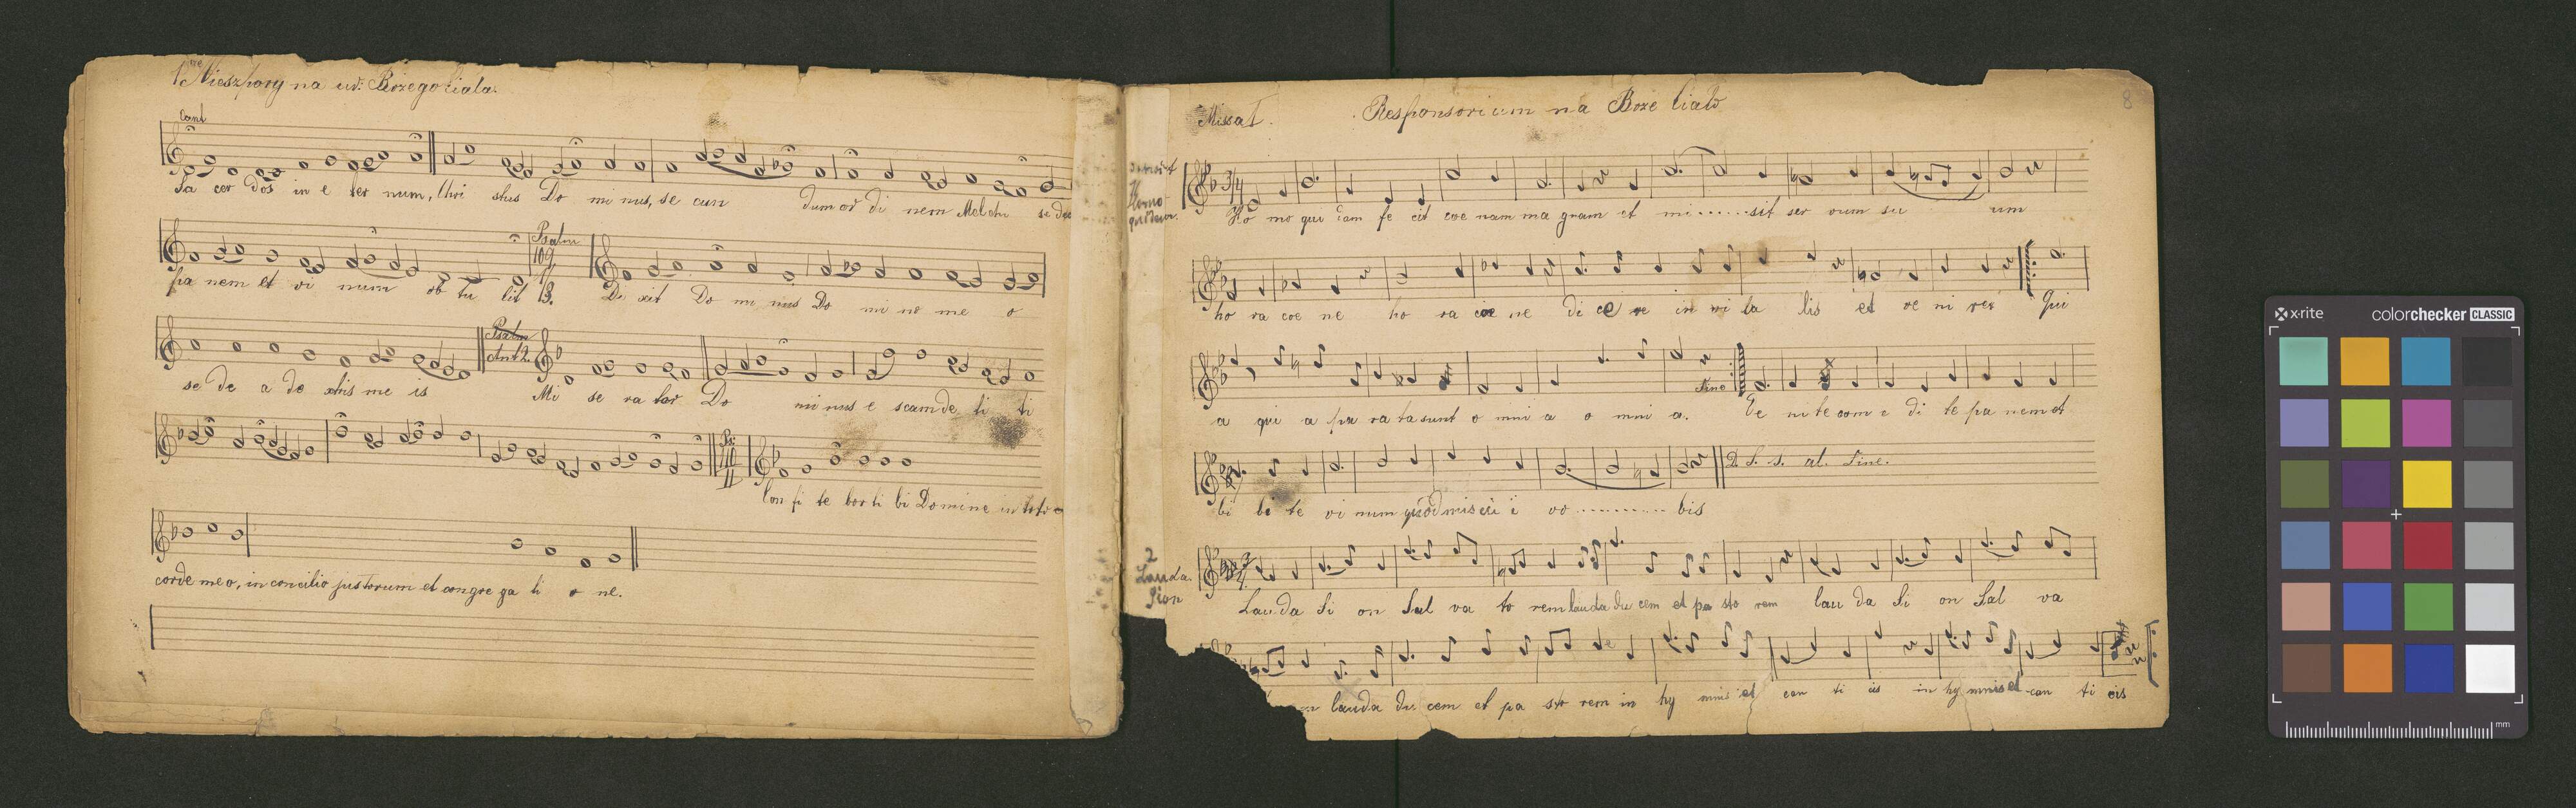 1sze Nieszpory na ur: Bożego Ciała.
Cant
Sa cer dos in e ter num, Chri stus Do mi nus, se cun dum or di nem Melchi se dec
Psalm
109
pa nem et vi num ob tu lit
Di xit Do mi nus Do mi no me o
Psalm
Ant 2.
se de a de xtris me is
Mi se ra tor Do mi nus e scam de di ti
Ps:
Con fi te bor ti bi Domine in toto
corde meo, in concilio justorum et congre ga ti o ne.
8
Missa I. Responsorium na Boże Ciało
Homo
quidam.
3/4
Ho mo qui dam fe cit coe nam ma gnam et mi.......sit ser vum su um
ho ra coe ne ho ra coe ne di ce re in vi ta tis et ve ni res Qui
Fine
a qui a pa ra ta sunt o mni a o mni a. Ve ni te com e di te pa nem et
D. S. s. al. Fine.
bi bi te vi num quod miscui vo .......... bis
2
Lauda
Sion
3/4
Lau da Si on Sal va to rem lauda du cem et pa sto rem lau da Si on Sal va
lauda du cem et pa sto rem in hy mnis et can ti cis in hy mnis et can ti cis
x-rite
colorchecker CLASSIC
mm